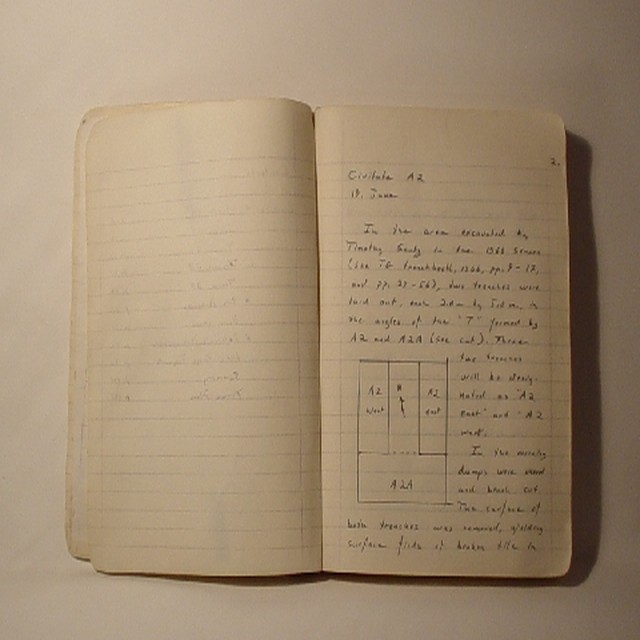 2.
Civitate A2
18. June
In the area excavated by
Timothy Gantz in the 1966 season
(see TG trenchbook, 1966, pp. 9-17,
and pp. 27-56), two trenches were
laid out, each 2.0 m by 5.0 m, in
the angles of the "T" formed by
A2 and A2A (see cut). These
two trenches
will be desig-
nated as "A2
east" and "A2
west."
A2 west
N
A2 east
A2A
In the morning
dumps were
and brush cut.
The surface of
both trenches was removed, yielding
surface finds of broken tile in